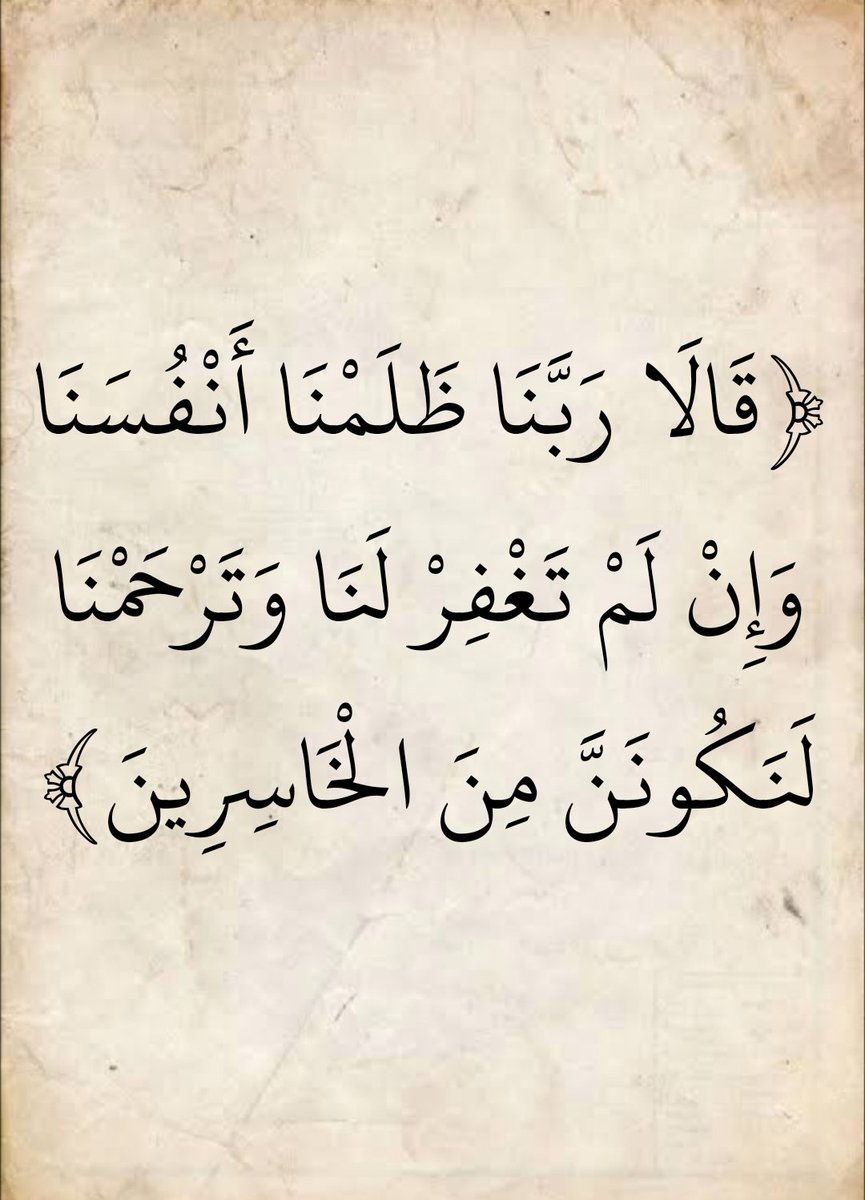 ﴿قَالَا رَبَّنَا ظَلَمْنَا أَنْفُسَنَا
وَإِنْ لَمْ تَغْفِرْ لَنَا وَتَرْحَمْنَا
لَنَكُونَنَّ مِنَ الْخَاسِرِينَ﴾